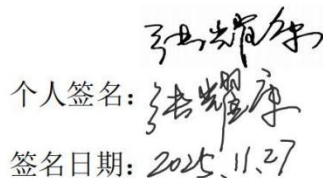 张耀康
个人签名：张耀康
签名日期：2025.11.27